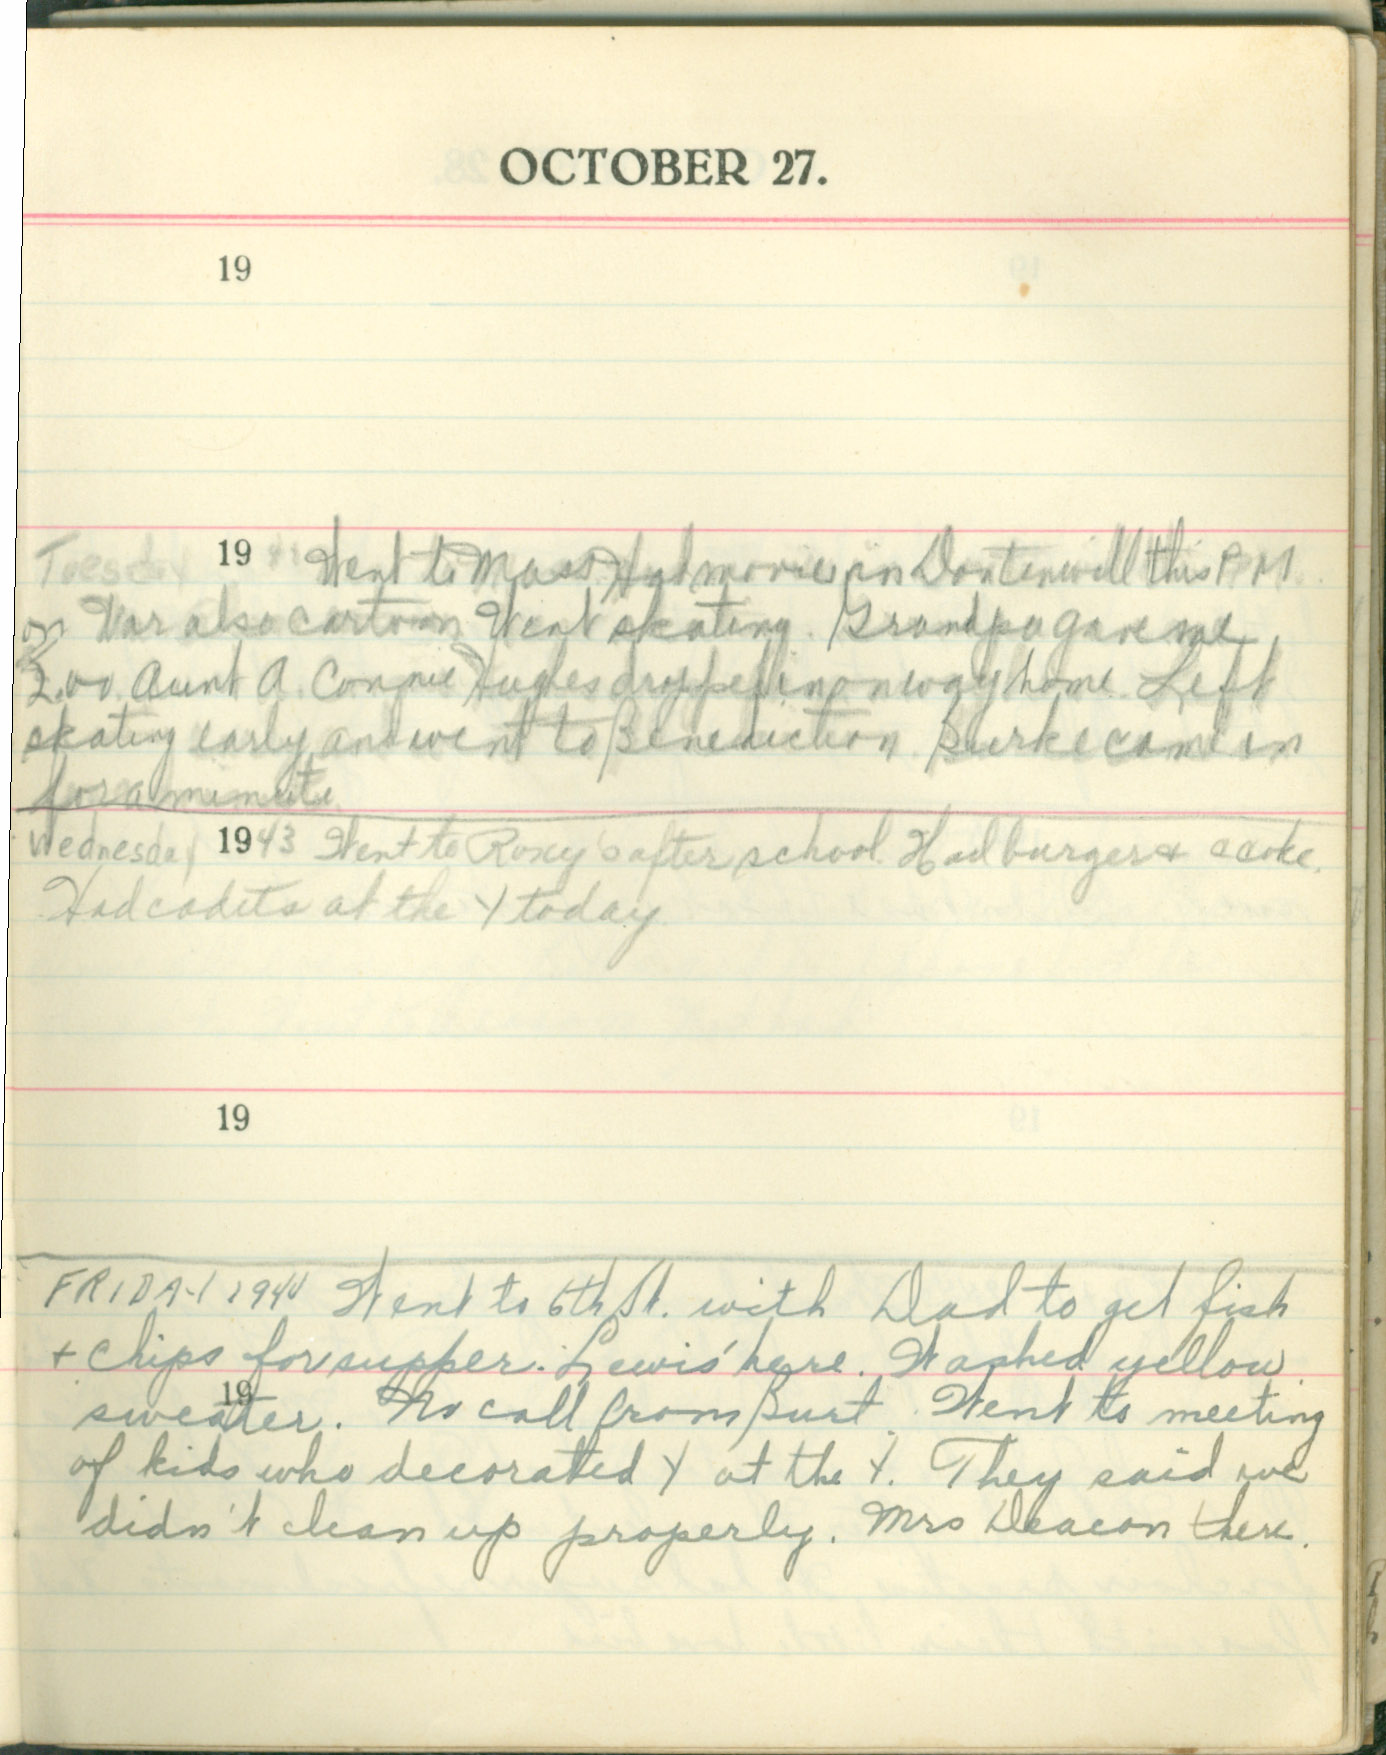 OCTOBER 27.
19
Tuesday 19 Went to Mass. Had movies in Dontenwill this P.M.
on War also cartoon Went skating. Grandpa gave me
2.00. Aunt A. Connie Hughes dropped in on way home. Left
skating early and went to Benediction. Burke came in
for a minute
Wednesday 1943 Went to Roxy's after school. Had burger & a coke.
Had cadets at the Y today
19
FRIDAY 1944 Went to 6th St. with Dad to get fish
+ chips for supper. Lewis' here. Washed yellow
19
sweater. No call from Burt. Went to meeting
of kids who decorated Y at the Y. They said we
didn't clean up properly. Mrs Deacon there.